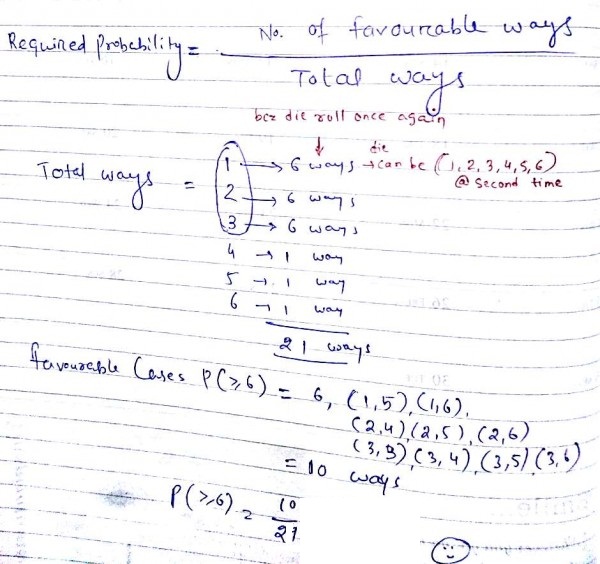 No. of favourable ways
Required Probability = 
Total ways
bcz die roll once again
Total ways = 1 → 6 ways → die can be (1, 2, 3, 4, 5, 6)
@ second time
2 → 6 ways
3 → 6 ways
4 → 1 way
5 → 1 way
6 → 1 way
21 ways
favourable Cases P(≥6) = 6, (1,5), (1,6),
(2,4) (2,5), (2,6)
(3,3) (3,4), (3,5) (3,6)
= 10 ways
P(≥6) = 10/21